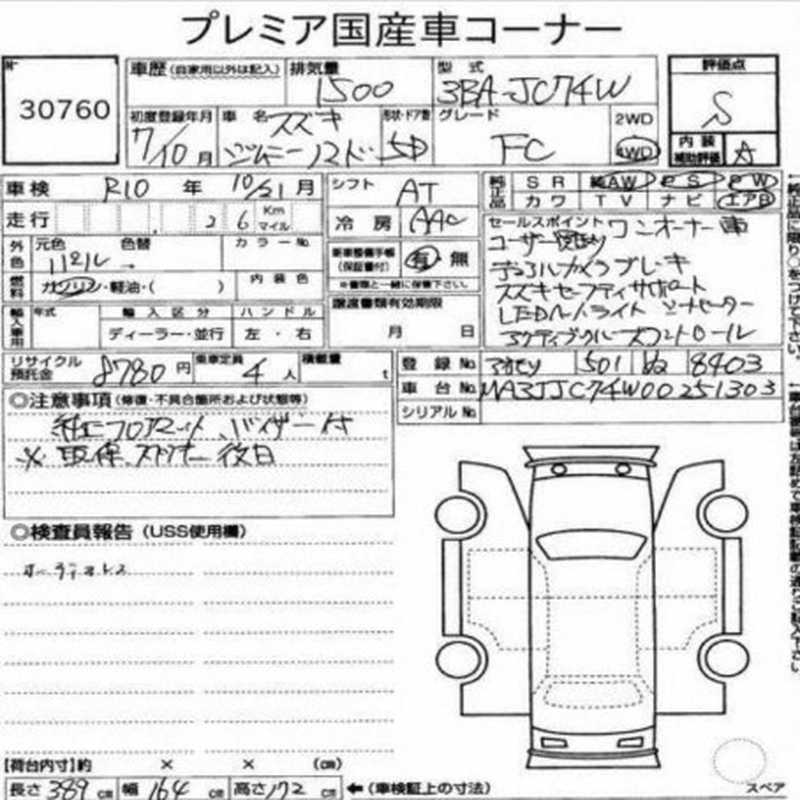 プレミア国産車コーナー
30760
車歴 (自家用以外は記入)
排気量 1500
型式 3BA-JC74W
評価点 S
初度登録年月 7/10月
車名 スズキ ジムニーノマド
形状・ドア数 5D
グレード FC
2WD
4WD
内装補助評価 A
車検 R10年 10/21月
シフト AT
純正品 SR AW PS PW
カワ TV ナビ エアB
走行 26 Km マイル
冷房 AAC
外色 元色 色替 カラーNo.
燃料 ガソリン・軽油・( )
内装色
整備手帳 (保証書付) 有・無
※書類と一緒に保管下さい。
セールスポイント ワンオーナー車
デュアルカメラブレーキ
スズキセーフティサポート
LEDヘッドライト シートヒーター
アダプティブクルーズコントロール
輸入車用 年式 輸入区分 ハンドル
ディーラー・並行 左・右
譲渡書類有効期限
月 日
リサイクル預託金 8780円
乗車定員 4人
積載量 t
登録No. 501 8403
車台No. JC74W00251303
シリアルNo.
◎注意事項 (修復・不具合箇所および状態等)
純正フロアマット、バイザー付
※ 取、保、後日
◎検査員報告 (USS使用欄)
オーディオレス
【荷台内寸】約 × × (cm)
長さ 389 cm 幅 164 cm 高さ 172 cm ←(車検証上の寸法)
スペア